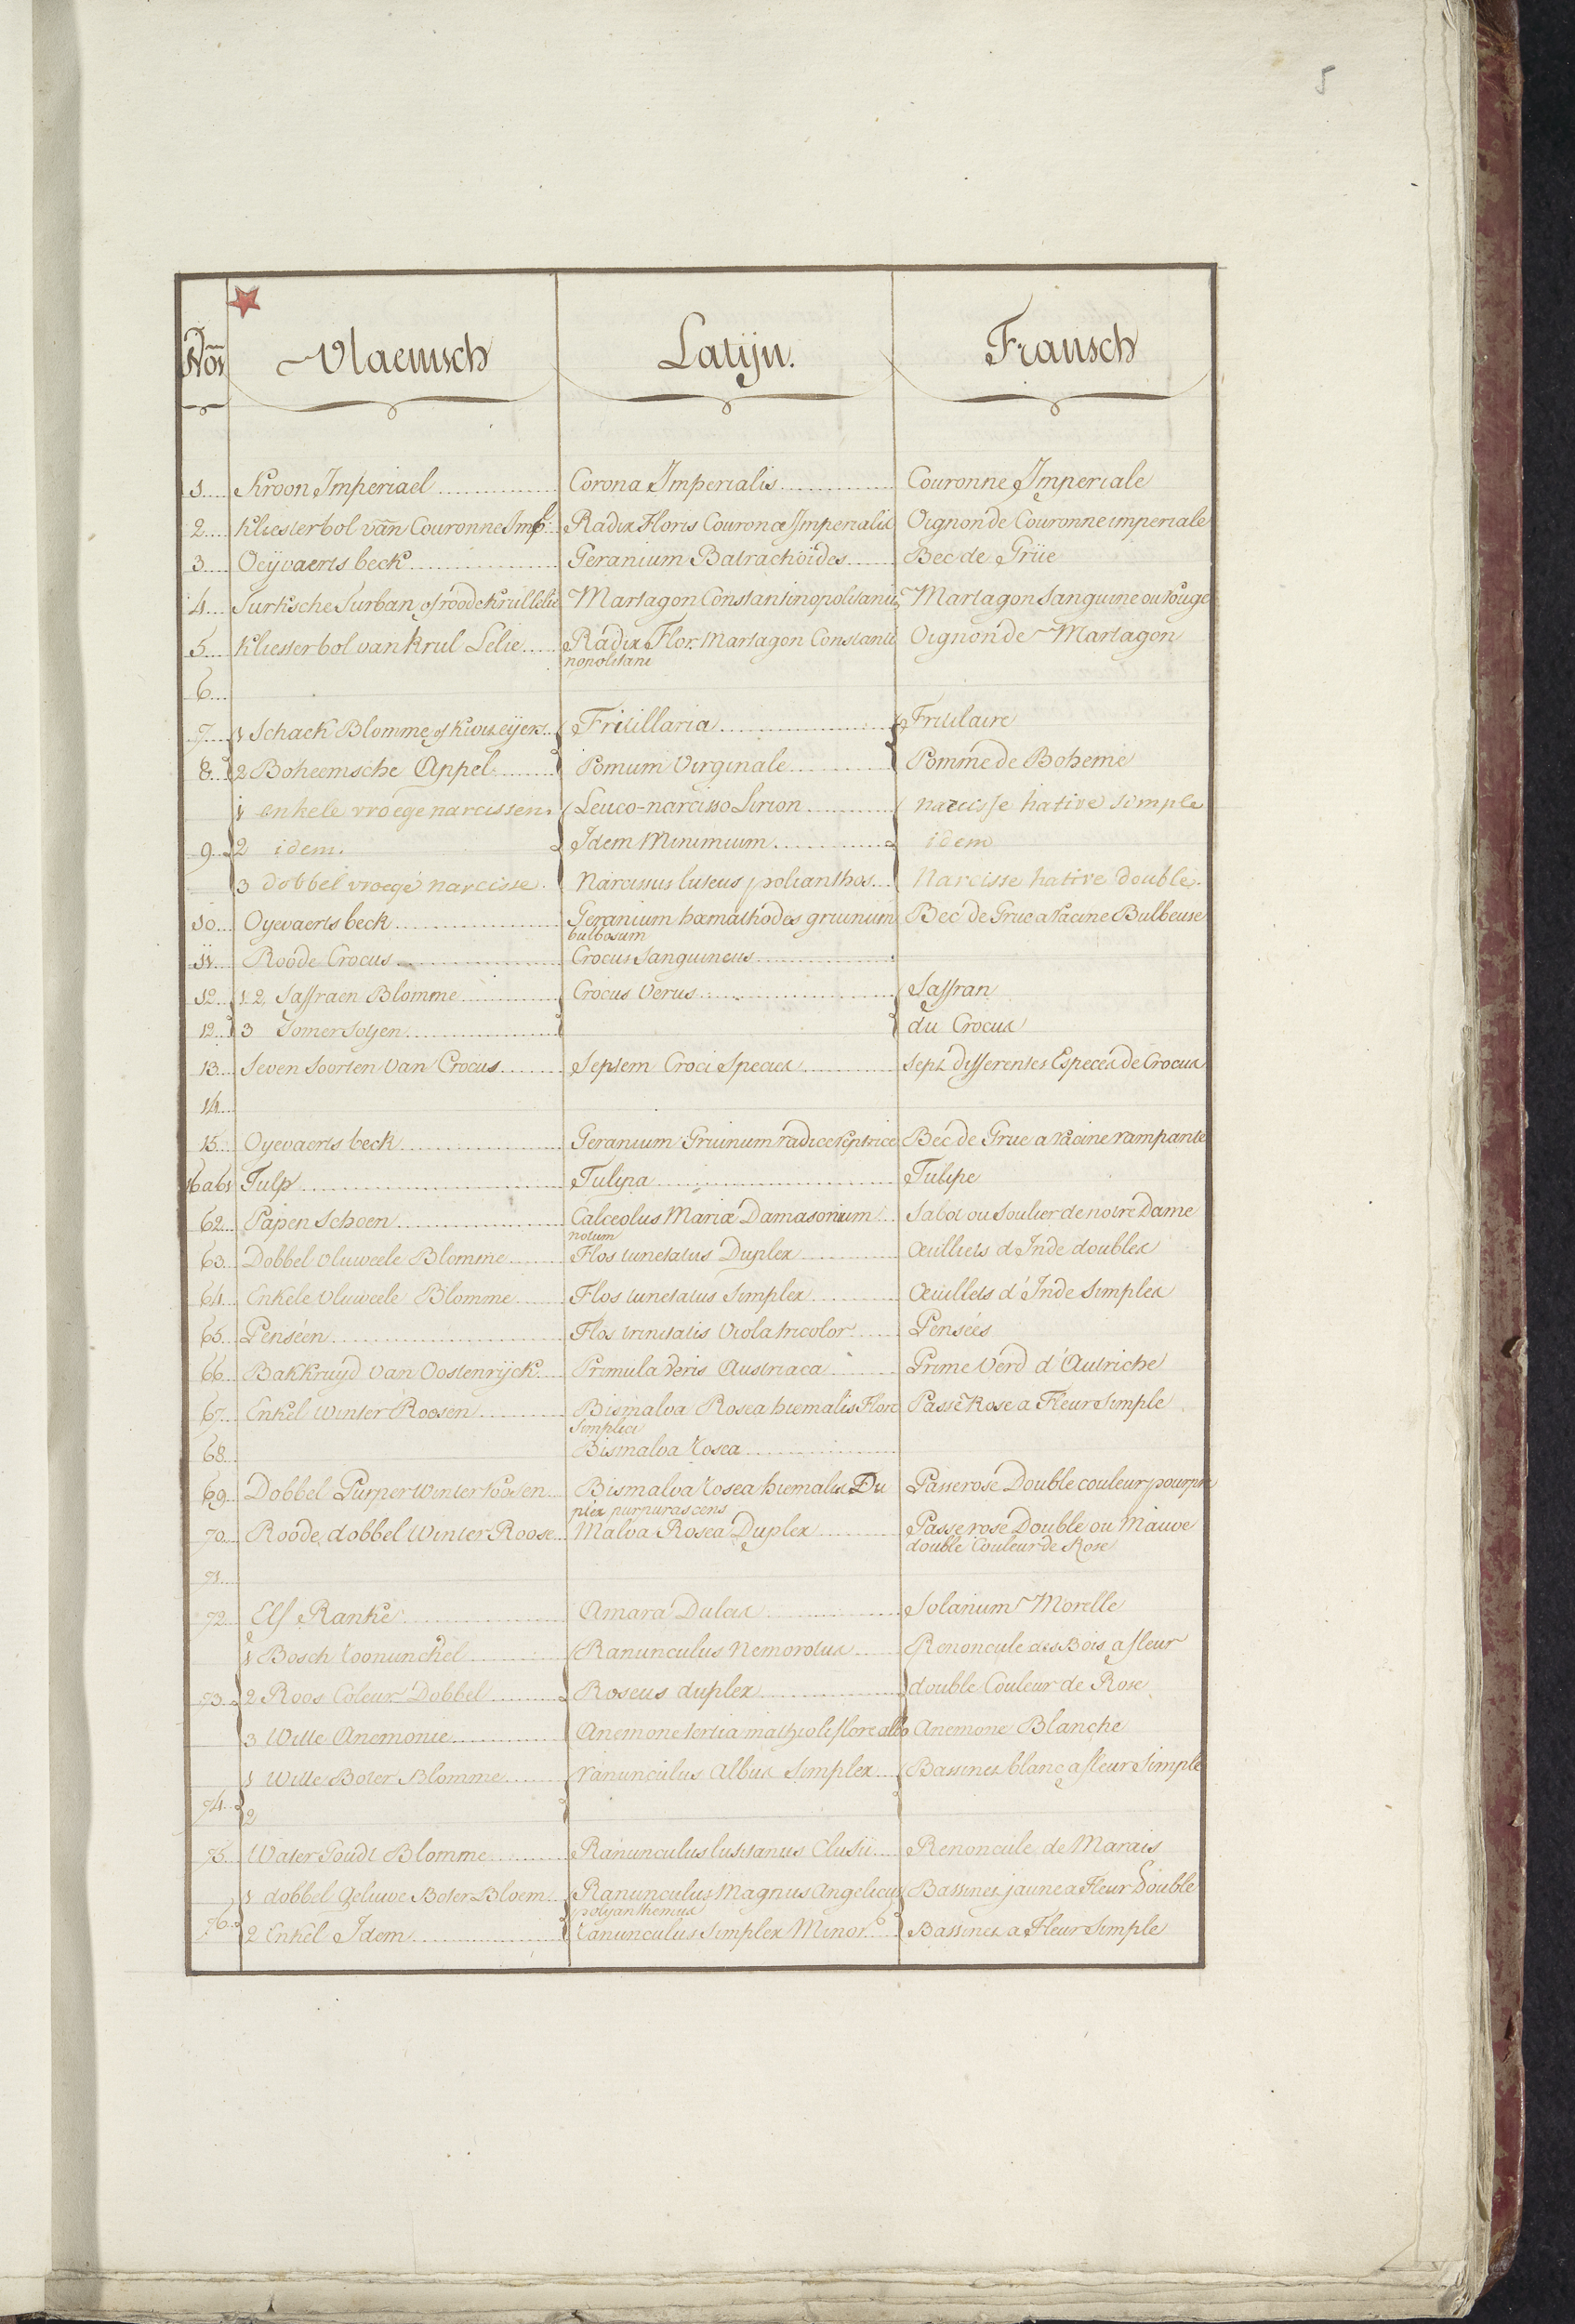 5
Nõs Vlaemsch Latijn. Fransch
1 Kroon Imperiael Corona Imperialis Couronne Imperiale
2 Kliesterbol van Couronne Imp. Radix Floris Couronæ Imperialis Oignon de Couronne imperiale
3 Oeÿvaerts beck Geranium Batrachöides Bec de Grüe
4 Turksche Turban of roode krullelie Martagon Constantinopolitanus Martagon Sanguine ou rouge
5 Kliesterbol van krul Lelie Radix Flor. Martagon Constanti Oignon de Martagon
nopolitani
6
7 1 Schaek Blomme of kivit eijers Fritillaria Fritilaire
8 2 Boheemsche Appel Pomum Virginale Pomme de Boheme
1 enkele vroege narcissen. Leuco-narcisso Lirion narcisse hative simple
9 2 idem. Idem Minimium idem
3 dobbel vroege narcisse. Narcissus luteus polianthos Narcisse hative double.
10 Oyevaerts beck Geranium hœmathodes gruinum Bec de Grue a racine Bulbeuse
bulbosum
11 Roode Crocus Crocus Sanguineus
12 1 2 Saffraen Blomme Crocus Verus Saffran
12 3 Tomer Sotjen du Crocus
13 Seven Soorten van Crocus Septem Croci Species Sept differentes Especes de Crocus
14
15 Oyevaerts beck Geranium Gruinum radice reptrice Bec de Grue a racine rampante
16 a 61 Tulp Tulipa Tulipe
62 Papen Schoen Calceolus Mariæ Damasonium Sabot ou Soulier de notre Dame
notum
63 Dobbel vluweele Blomme Flos tunetatus Duplex Œuilliets d'Inde doubles
64 Enkele vluweele Blomme Flos tunetatus Simplex Œuillets d'Inde Simples
65 Penséen Flos trinitatis Viola tricolor Pensées
66 Bakkruÿd van Oostenrijck Primula Veris Austriaca Prime Verd d'Autriche
67 Enkel Winter Roosen Bismalva Rosea hiemalis Flore Passe Rose a Fleur Simple
Simplici
68 Bismalva rosea
69 Dobbel Purper Winter roosen Bismalva rosea hiemalis Du Passerose Double couleur pourpre
plex purpurascens
70 Roode dobbel Winter Roose Malva Rosea Duplex Passe rose Double ou Mauve
double Couleur de Rose
71
72 Elf Ranke Amara Dulcis Solanum Morelle
1 Bosch roonunckel Ranunculus Nemorosus Renoncule des Bois a fleur
73 2 Roos Coleur Dobbel Roseus duplex double Couleur de Rose
3 Witte Anemonie Anemone tertia mathioli flore albo Anemone Blanche
1 Witte Boter Blomme ranunculus Albus Simplex Bassines blanc a fleur Simple
74 2
75 Water Goudt Blomme Ranunculus lusitanus Clusii Renoncule de Marais
1 dobbel Geluwe Boter Bloem Ranunculus Magnus Angelicus Bassines jaune a Fleur Double
polyanthemus
76 2 Enkel Idem ranunculus Simplex Minor Bassines a Fleur Simple